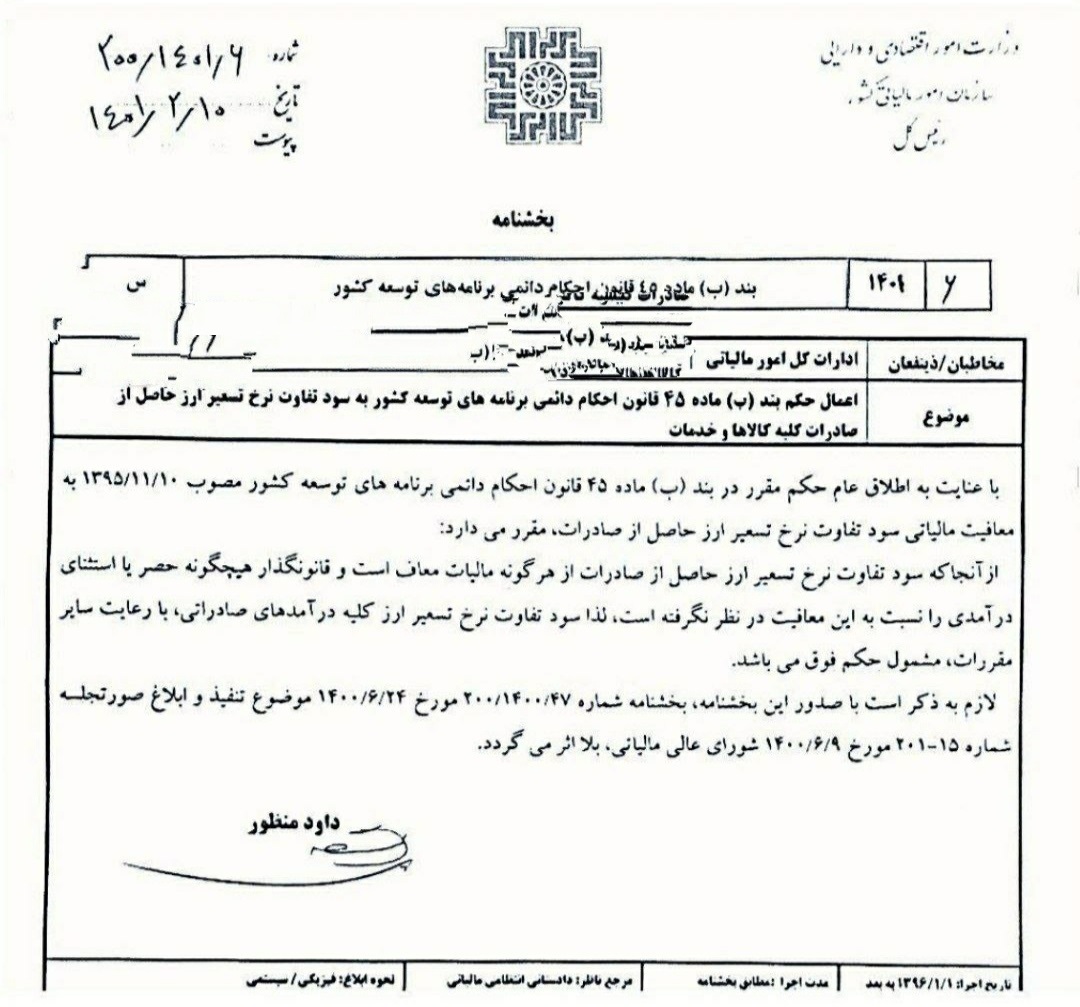 وزارت امور اقتصادی و دارایی
سازمان امور مالیاتی کشور
رئیس کل
شماره: ۲۰۰/۱۴۰۱/۶
تاریخ ۱۴۰۱/۲/۱۰
پیوست
بخشنامه
۶ ۱۴۰۱ بند (ب) ماده ۴۵ قانون احکام دائمی برنامه‌های توسعه کشور س
مخاطبان/ذینفعان ادارات کل امور مالیاتی
موضوع
اعمال حکم بند (پ) ماده ۴۵ قانون احکام دائمی برنامه های توسعه کشور به سود تفاوت نرخ تسعیر ارز حاصل از
صادرات کلیه کالاها و خدمات
با عنایت به اطلاق عام حکم مقرر در بند (پ) ماده ۴۵ قانون احکام دائمی برنامه های توسعه کشور مصوب ۱۳۹۵/۱۱/۱۰ به
معافیت مالیاتی سود تفاوت نرخ تسعیر ارز حاصل از صادرات، مقرر می دارد:
از آنجاکه سود تفاوت نرخ تسعیر ارز حاصل از صادرات از هرگونه مالیات معاف است و قانونگذار هیچگونه حصر یا استثنای
درآمدی را نسبت به این معافیت در نظر نگرفته است، لذا سود تفاوت نرخ تسعیر ارز کلیه درآمدهای صادراتی، با رعایت سایر
مقررات، مشمول حکم فوق می باشد.
لازم به ذکر است با صدور این بخشنامه، بخشنامه شماره ۲۰۰/۱۴۰۰/۴۷ مورخ ۱۴۰۰/۶/۲۴ موضوع تنفیذ و ابلاغ صورتجلسه
شماره ۱۵-۲۰۱ مورخ ۱۴۰۰/۶/۹ شورای عالی مالیاتی، بلا اثر می گردد.
داود منظور
تاریخ اجرا: ۱۳۹۶/۱/۱ به بعد مدت اجرا :مطابق بخشنامه مرجع ناظر: دادستانی انتظامی مالیاتی نحوه ابلاغ: فیزیکی/ سیستمی